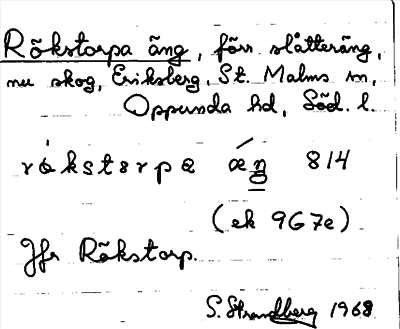 Rökstorpa äng, förr slåtteräng,
nu skog, Eriksberg, St. Malms sn,
Oppunda hd, Söd. l.
814
(ek 9G7e)
Jfr Rökstorp.
S. Strandberg 1968